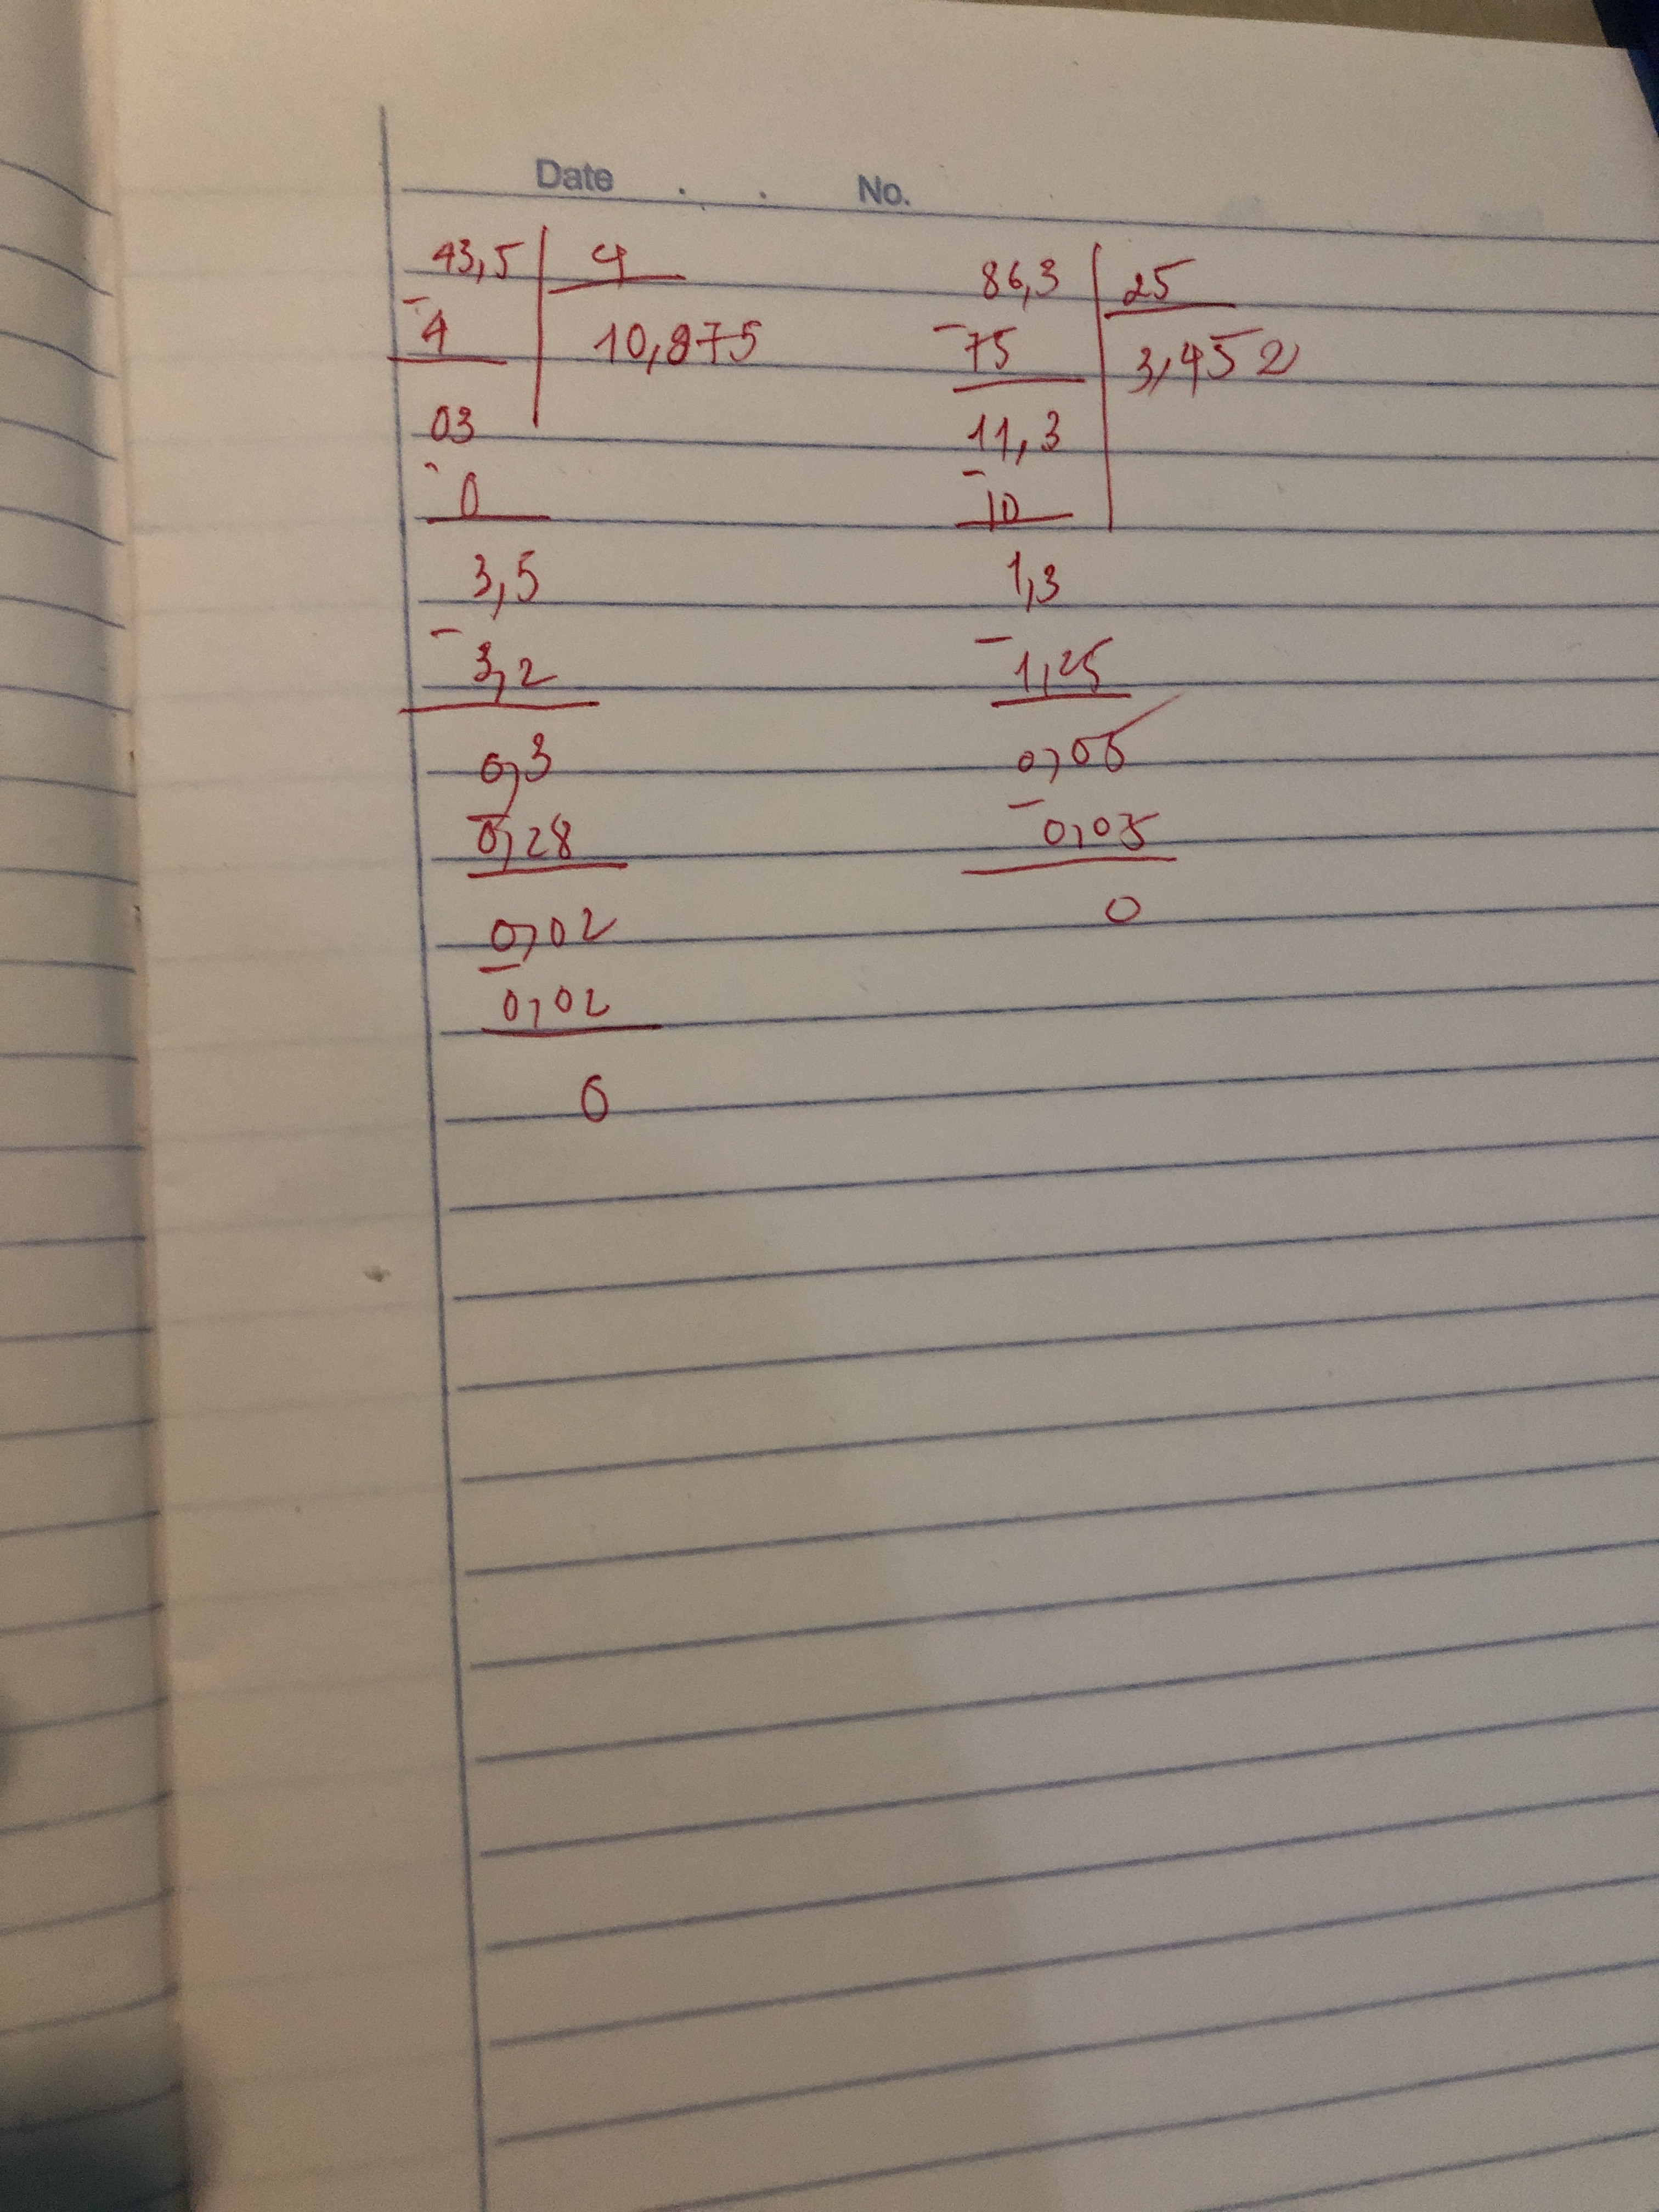 Date . . No.
43,5 4
- 4 10,875
03
- 0
3,5
- 3,2
0,3
- 0,28
0,02
- 0,02
0
86,3 25
- 75 3,452
11,3
- 10
1,3
- 1,25
0,05
- 0,05
0